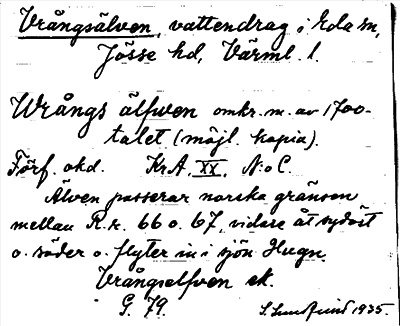 Vrångsälven, vattendrag i Eda sn,
Jösse hd, Värml. l.
Wrångs älfwen omkr. m. av 1700-
talet (möjl. kopia).
Förf. okd. KrA. XX. N:o C.
Älven passerar norska gränsen
mellan R.r. 66 o. 67, vidare åt sydöst
o. söder o. flyter in i sjön Hugn.
Vrångselfven ek.
G. 79.
S. Lundfund 1935.